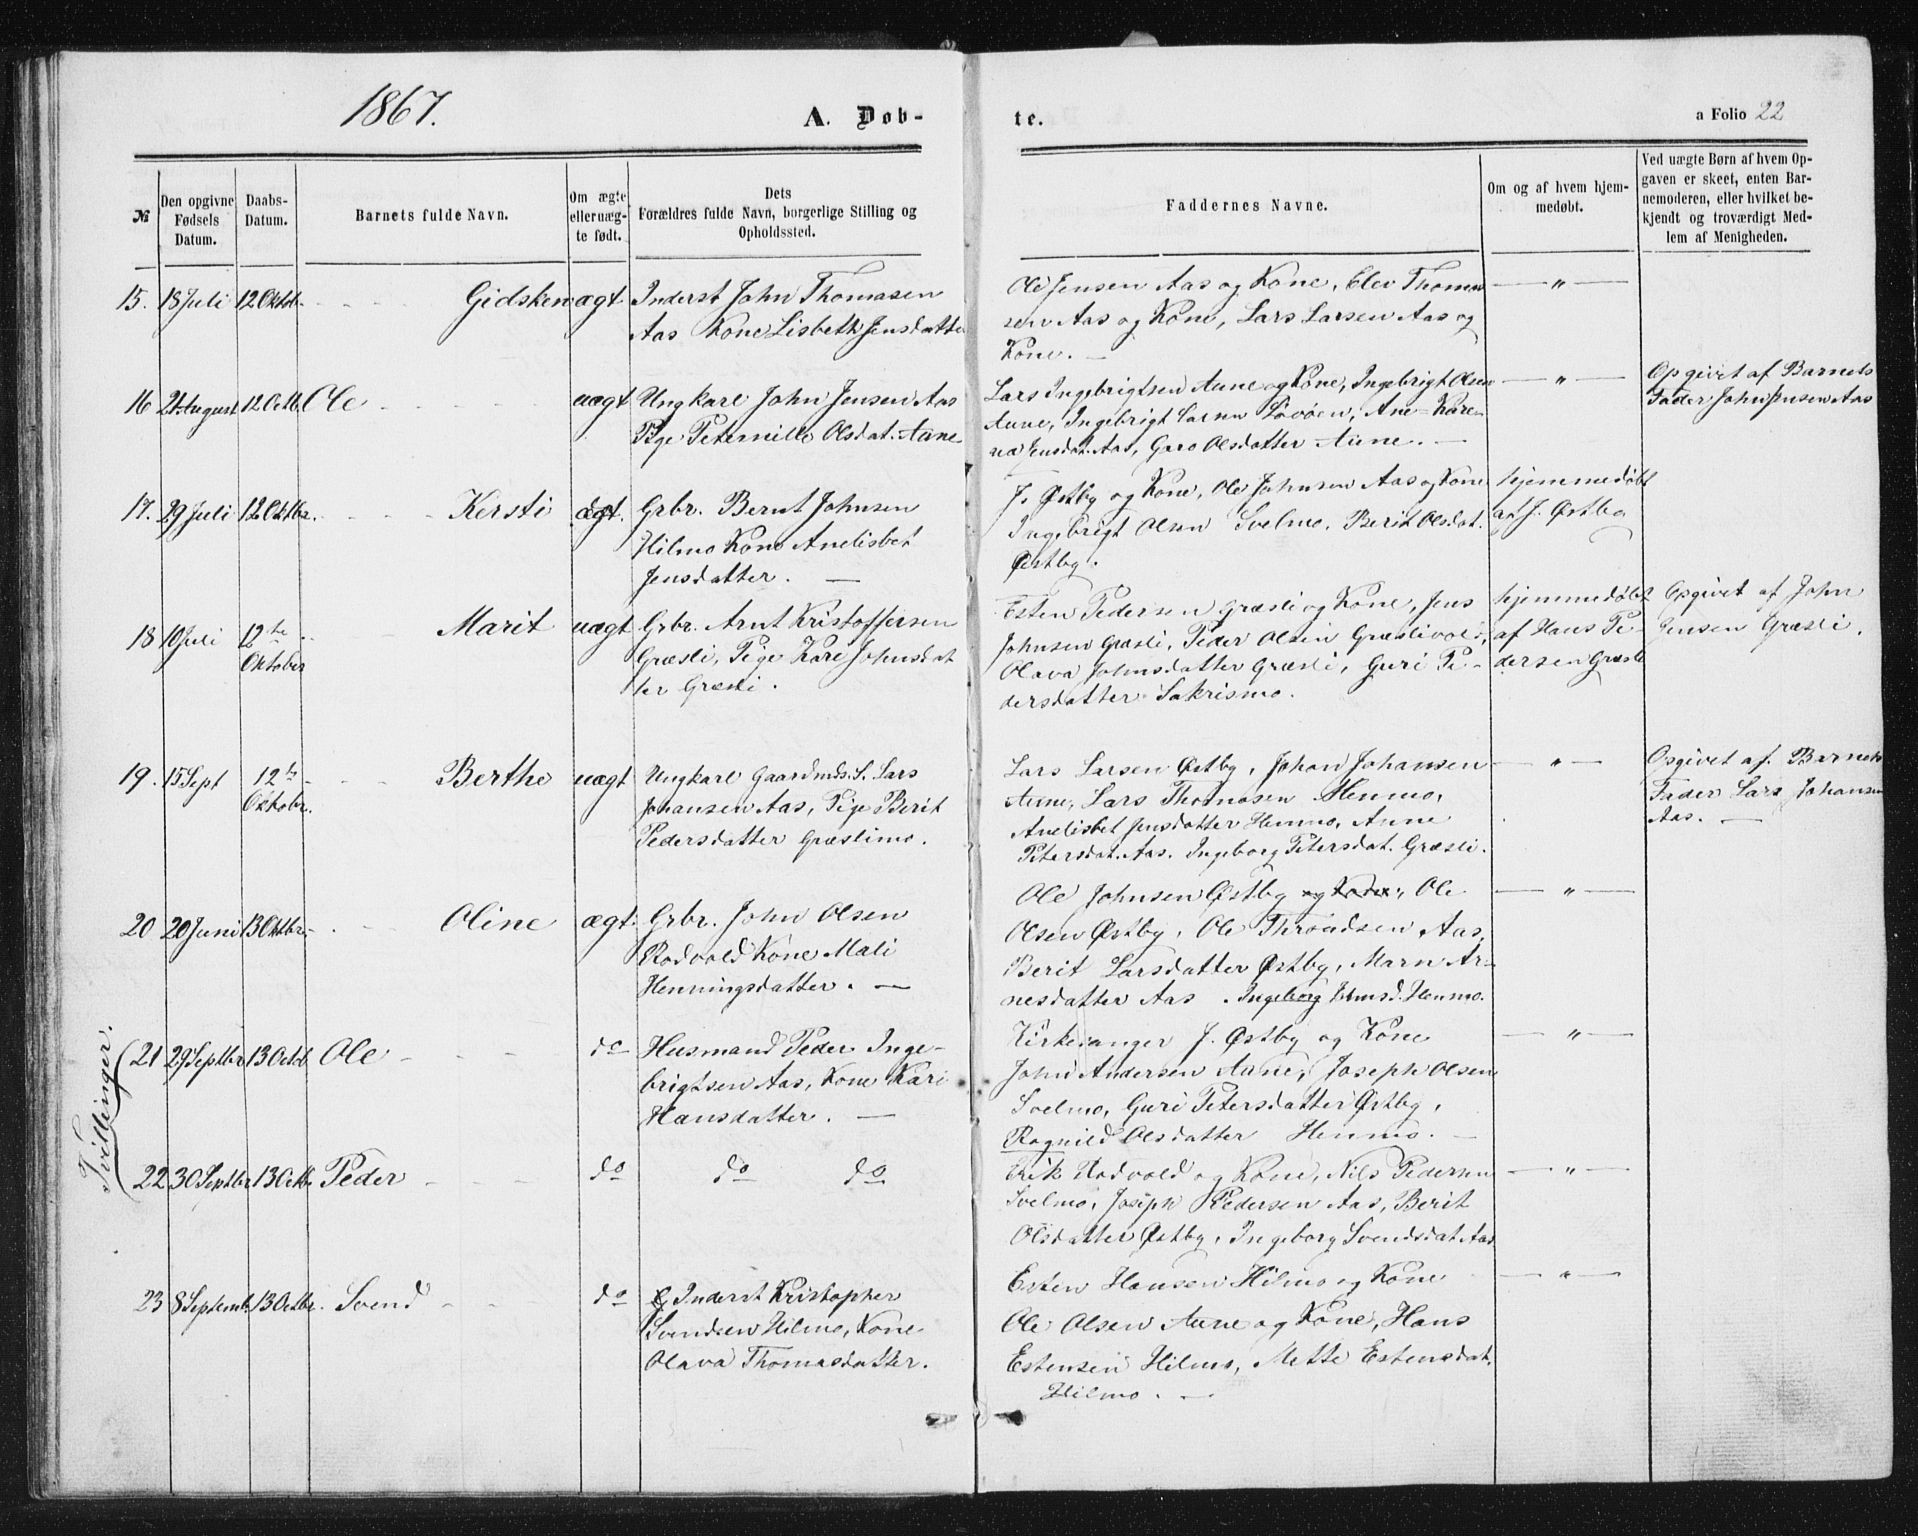 1867.
A. Døb-
te.
a Folio 22
№
Den opgivne
Fødsels
Datum.
Daabs-
Datum.
Barnets fulde Navn.
Om ægte
eller uæg-
te født.
Dets
Forældres fulde Navn, borgerlige Stilling og
Opholdssted.
Faddernes Navne.
Om og af hvem hjem-
medøbt.
Ved uægte Børn af hvem Op-
gaven er skeet, enten Bar-
nemoderen, eller hvilket be-
kjendt og troværdigt Med-
lem af Menigheden.
15. 18 Juli 12 Oktob. Gidsken ægt Inderst John Thomasen
Aas Kone Lisbeth Jensdatter
Ole Jensen Aas og Kone, Elev Thoma
sen Aas og Kone, Lars Larsen Aas og
Kone. —
— " —
16 21 August 12 Octb. Ole uægt Ungkarl John Jensen Aas
Pige Peternille Olsdat. Aune
Lars Ingebrigtsen Aune og Kone, Ingebrigt Olsen
Aune, Ingebrigt Larsen Løvøen, Ane Kare-
na Jensdat. Aas, Guro Olsdatter Aune. —
— " —
Opgivet af Barnets
Fader John Jensen Aas
17. 29 Juli 12 Oktbr. Kersti ægt. Grbr. Bernt Johnsen
Hilmo Kone Anelisbet
Jensdatter. —
J. Østby og Kone, Ole Johnsen Aas og Kone
Ingebrigt Olsen Svelmo, Berit Olsdat.
Østby.
hjemmedøbt
af J. Østby
18 10 Juli 12te
Oktober
Marit uægt Grbr. Arnt Kristoffersen
Græsli, Pige Kari Johnsdat
ter Græsli.
Esten Pedersen Græsli og Kone, Jens
Johnsen Græsli, Peder Olsen Græslivold,
Olava Johnsdatter Græsli, Guri Pe-
dersdatter Sakrismo.
hjemmedøbt
af Hans Pe-
dersen Græsli
Opgivet af John
Jensen Græsli.
19. 15 Sept 12te
Oktobr.
Berthe uægt Ungkarl Gaardmds. S. Lars
Johansen Aas, Pige Berit
Pedersdatter Græslimo.
Lars Larsen Østby, Johan Johansen
Aune, Lars Thomasen Henmo,
Anelisbet Jensdatter Henmo, Anne
Petersdat. Aas. Ingeborg Petersdat. Græsli.
— " —
Opgivet af Barnets
Fader Lars Johansen
Aas. —
20 20 Juni 13 Oktbr. Oline ægt. Grbr. John Olsen
Rodvold Kone Mali
Henningsdatter. —
Ole Johnsen Østby og Kone, Ole
Olsen Østby, Ole Throndsen Aas,
Berit Larsdatter Østby, Marn Ar-
nesdatter Aas. Ingeborg Johnsd. Henmo.
— " —
Tvillinger.
21 29 Septbr 13 Octob Ole do Husmand Peder Inge-
brigtsen Aas, Kone Kari
Hansdatter. —
Kirkesanger J. Østby og Kone
John Andersen Aune, Joseph Olsen
Svelmo, Guri Petersdatter Østby,
Ragnild Olsdatter Henmo. —
— " —
22 30 Septbr 13 Octb. Peder do do do
Erik Rodvold og Kone, Nils Pedersen
Svelmo, Joseph Pedersen Aas, Berit
Olsdatter Østby, Ingeborg Svendsdat. Aas
— " —
23 8 Septemb. 13 Octbr. Svend do Inderst Kristopher
Svendsen Hilmo, Kone
Olava Thomasdatter.
Esten Hansen Hilmo og Kone
Ole Olsen Aune og Kone, Hans
Estensen Hilmo, Mette Estensdat.
Hilmo. —
— " —